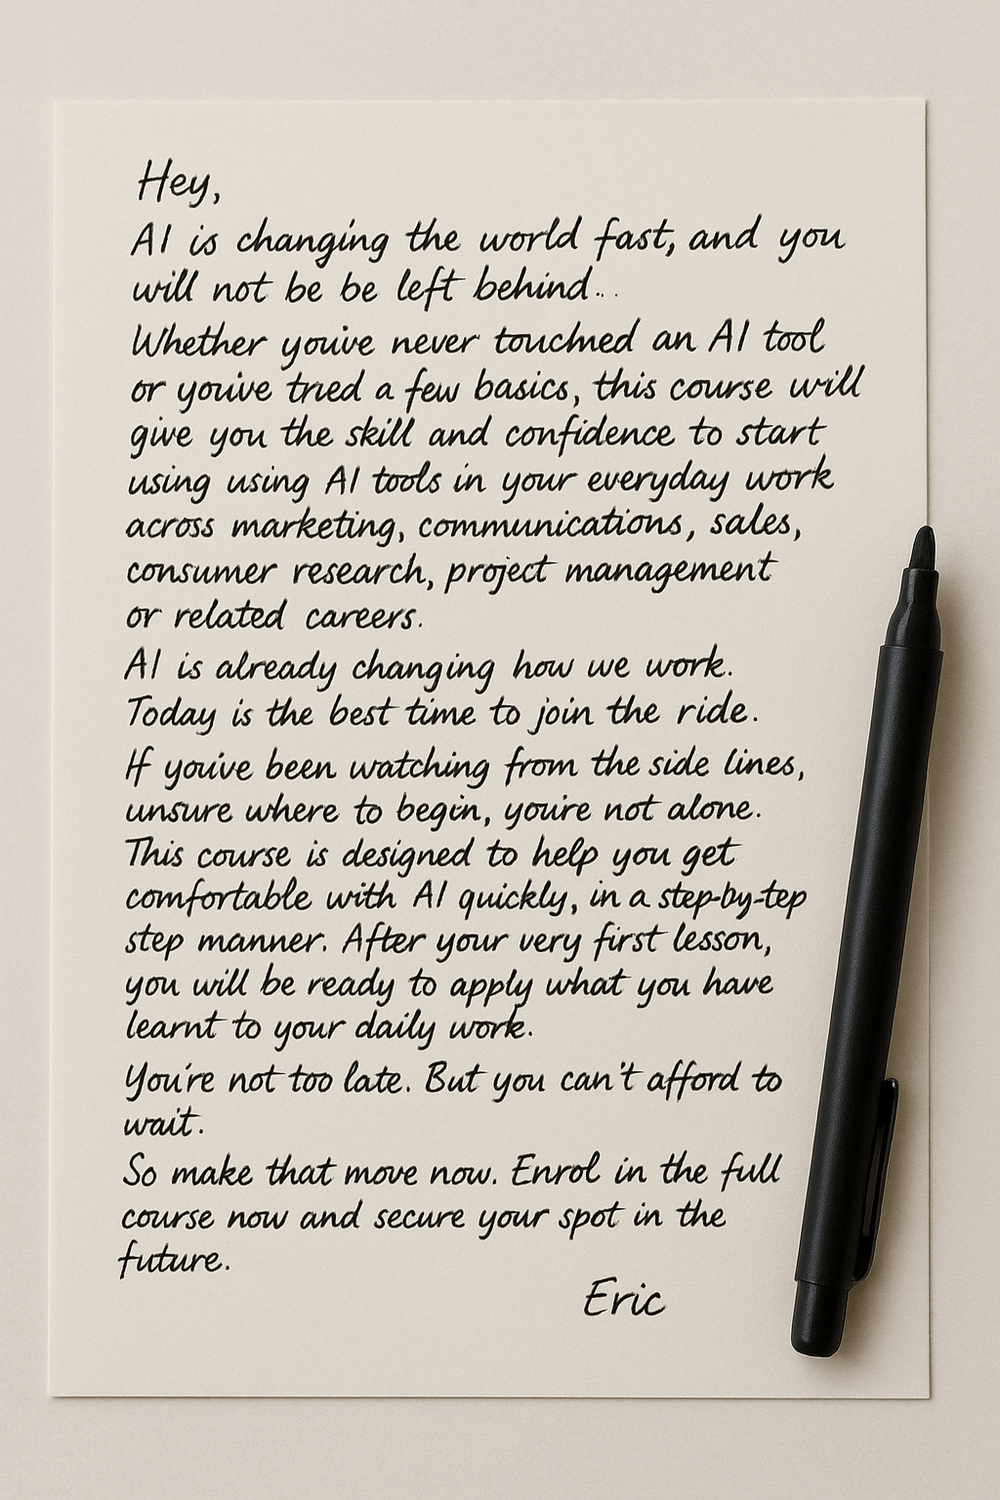 Hey,
AI is changing the world fast, and you
will not be be left behind...
Whether you've never touchned an AI tool
or you've tried a few basics, this course will
give you the skill and confidence to start
using using AI tools in your everyday work
across marketing, communications, sales,
consumer research, project management
or related careers.
AI is already changing how we work.
Today is the best time to join the ride.
If you've been watching from the side lines,
unsure where to begin, you're not alone.
This course is designed to help you get
comfortable with AI quickly, in a step-by-tep
step manner. After your very first lesson,
you will be ready to apply what you have
learnt to your daily work.
You're not too late. But you can't afford to
wait.
So make that move now. Enrol in the full
course now and secure your spot in the
future.
Eric